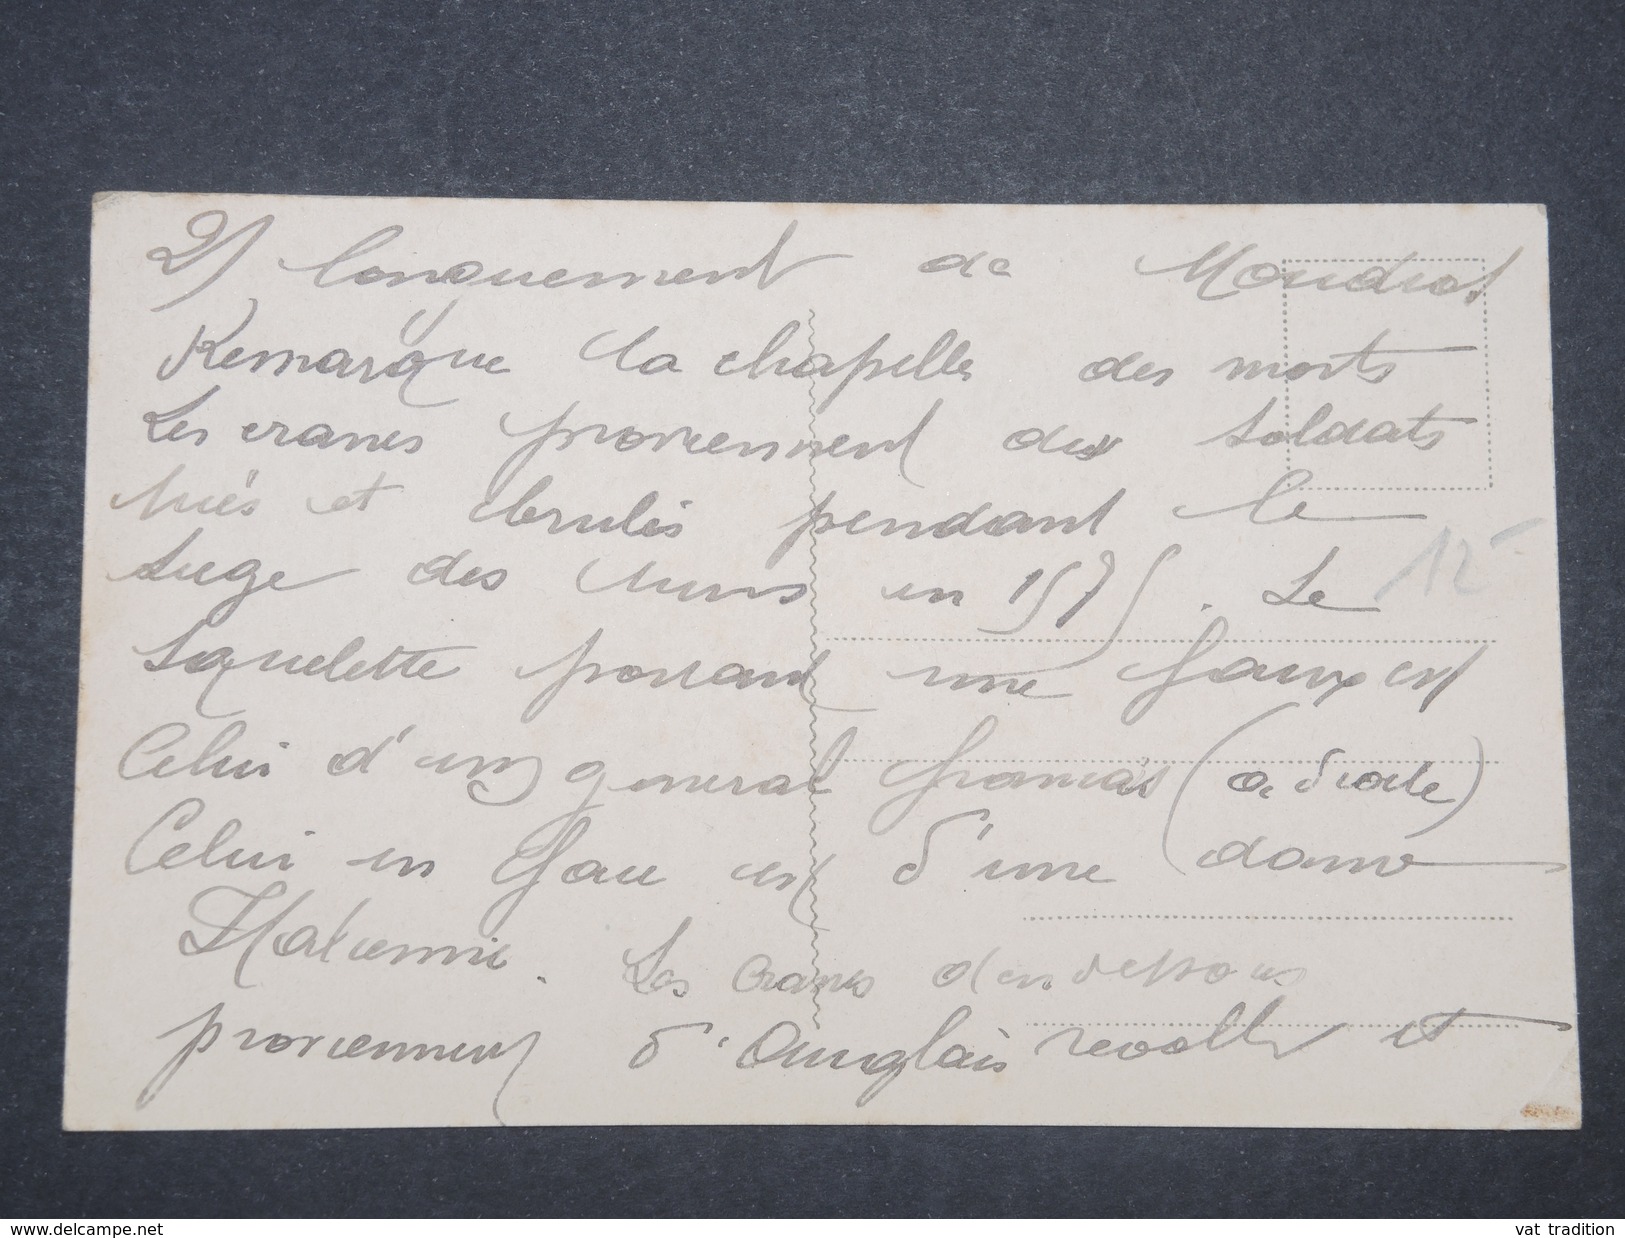 2) longuement de Moudros
Remarque la chapelle des morts
Les cranes proviennent des soldats
tués et brulés pendant le
siege des turcs en 1575. Le
squelette portant une faux est
Celui d'un general français (a droite)
Celui en face est d'une dame
Italienne. Les cranes d'en dessous
proviennent d'Anglais revoltés et
12-
www.delcampe.net
vat_tradition